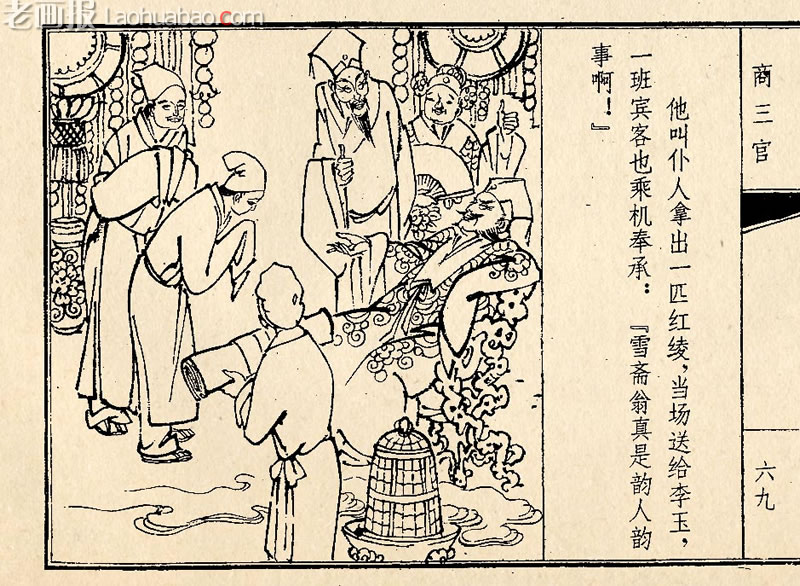 老画报.com
Laohuabao.com
商三官
他叫仆人拿出一匹红绫，当场送给李玉，
一班宾客也乘机奉承：『雪斋翁真是韵人韵
事啊！』
六九